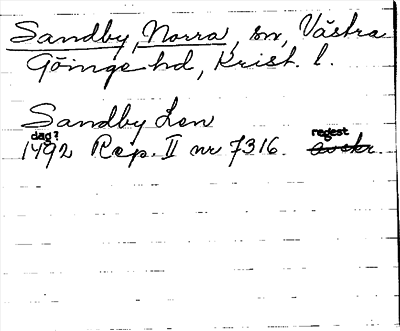 Sandby, Norra, sn, Västra
Göinge hd, Krist. l.
Sandby Len
dag?
1492 Rep. II nr 7316. regest
avskr.